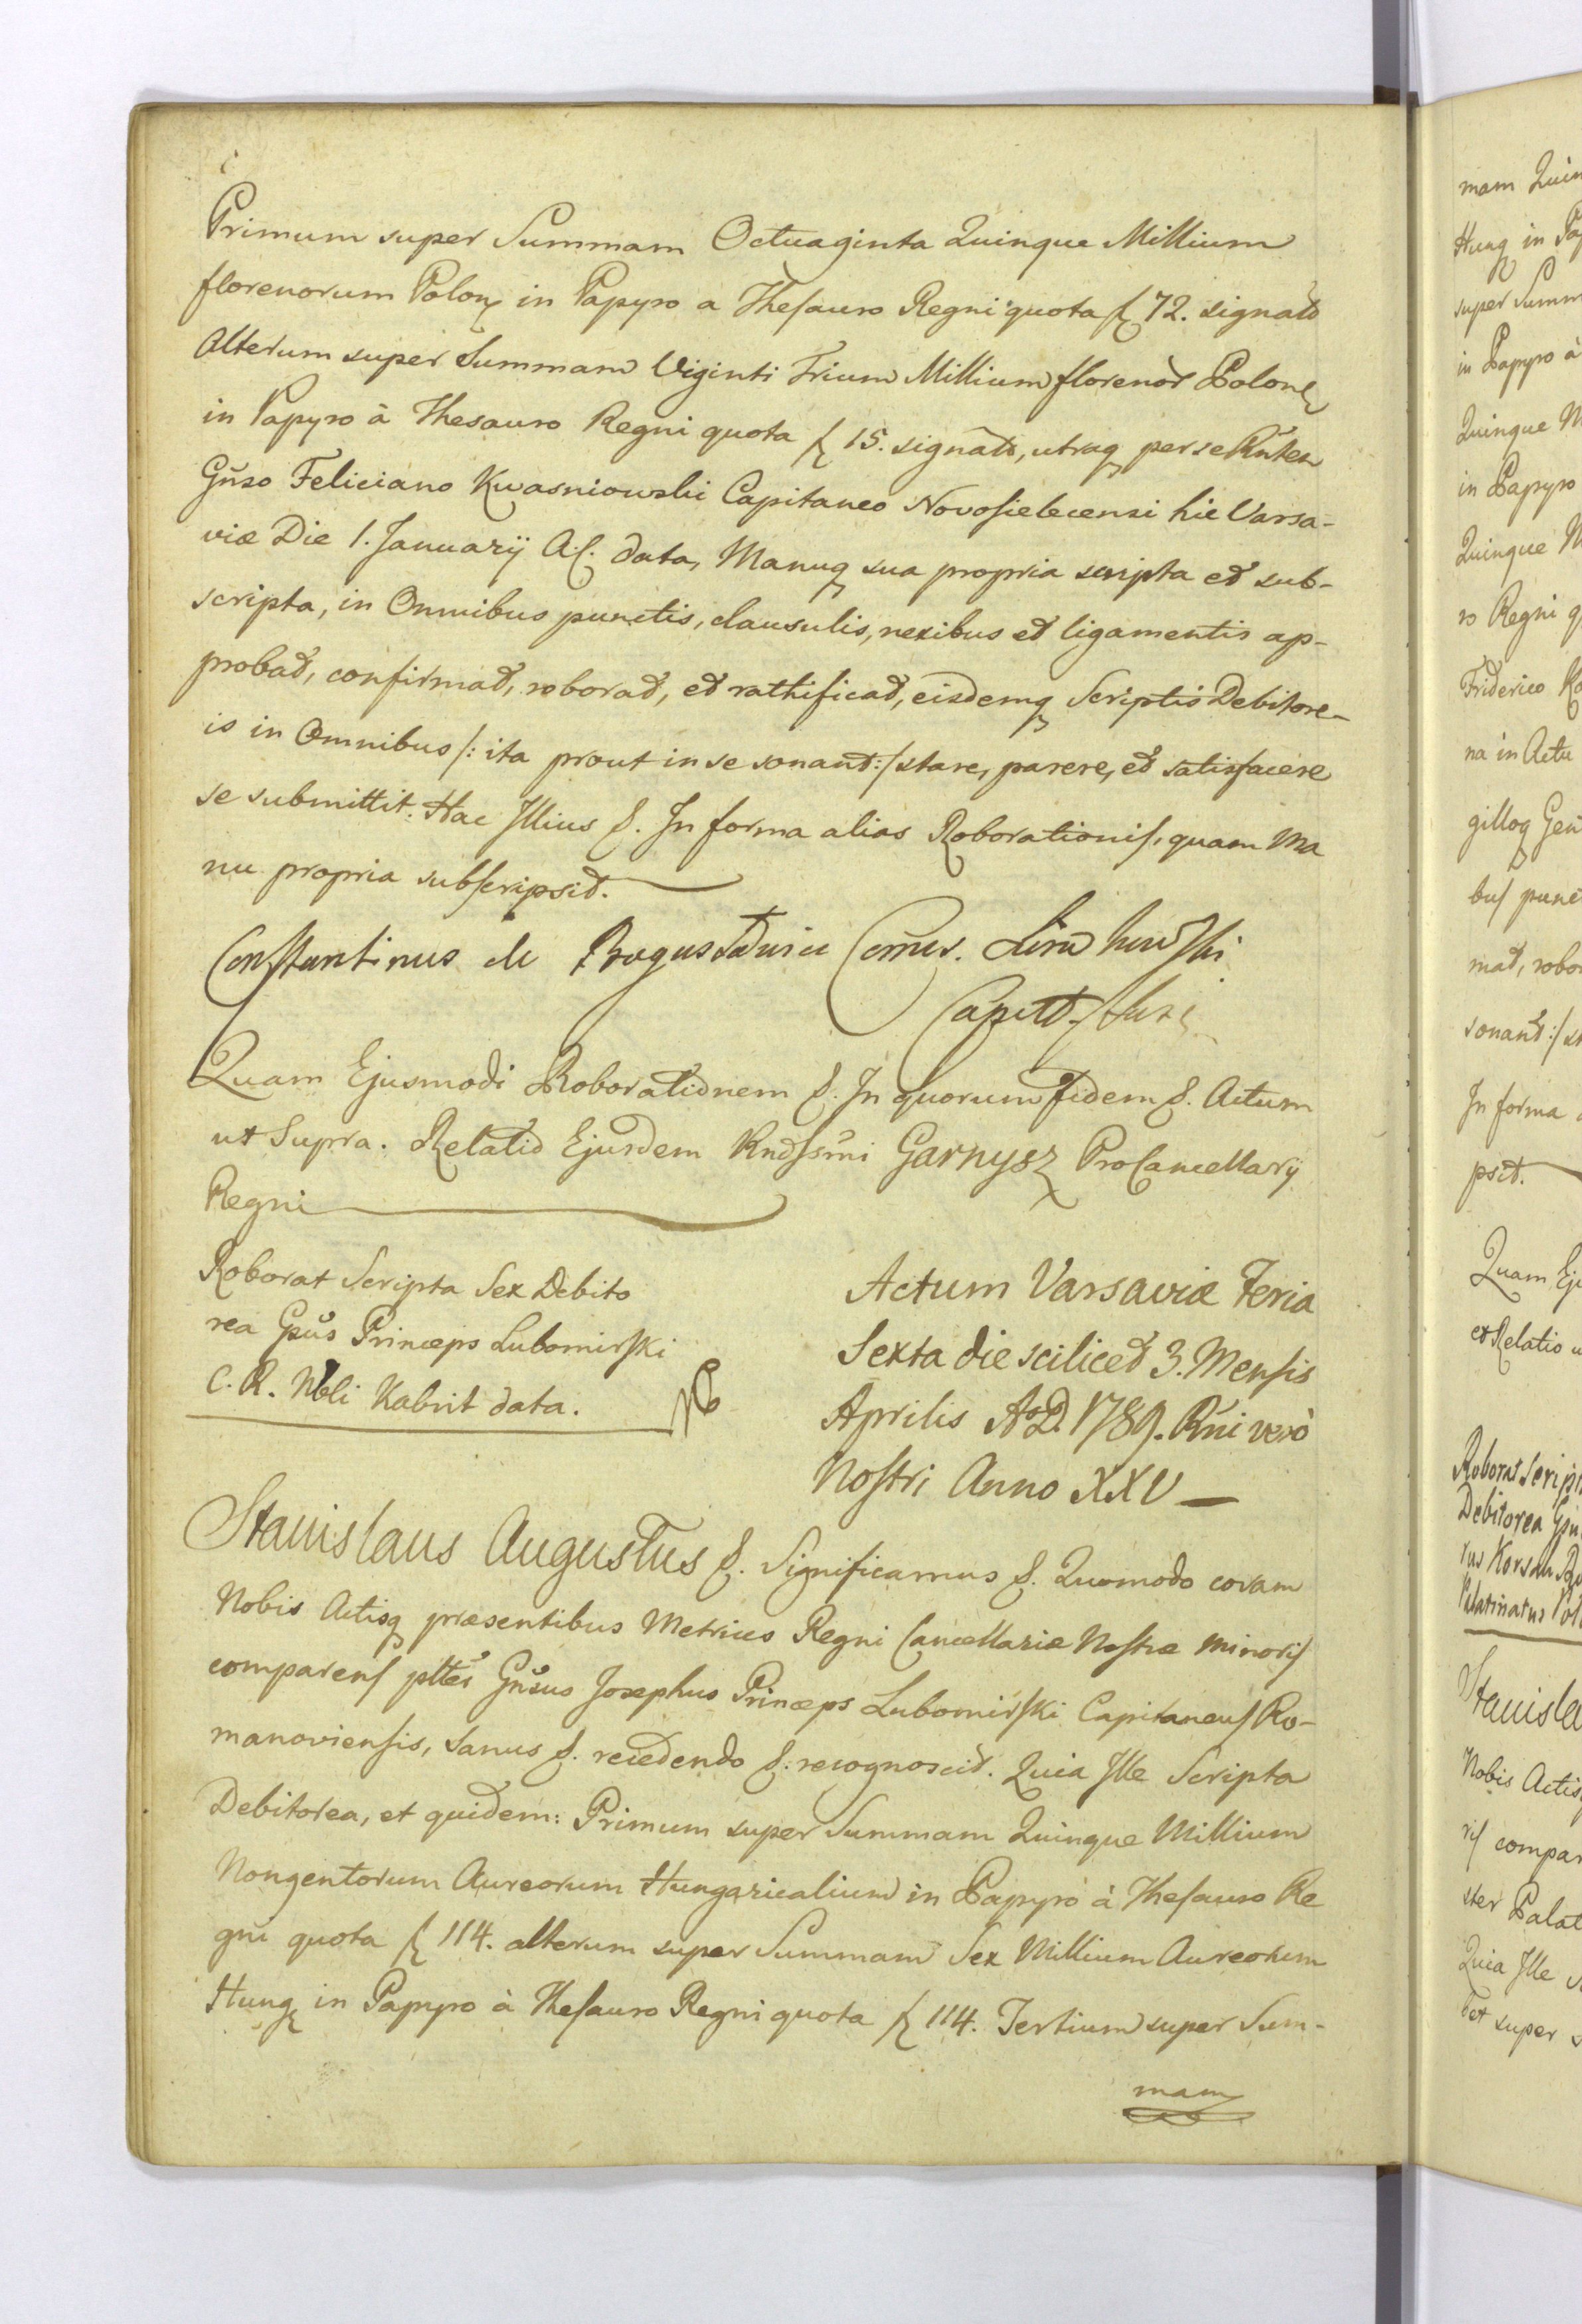 Primum super Summam Octuaginta Quinque Millium
florenorum Polon in Papyro a Thesauro Regni quota f 72. signato
Alterum super Summam Viginti Trium Millium florenor Polon
in Papyro à Thesauro Regni quota f 15. signato, utraq per se
Gnso Feliciano Kwasniowski Capitaneo Novosielecensi hic Varsa-
viæ Die 1. Januarij A. C. data, Manuq sua propria scripta et sub-
scripta, in Omnibus punctis, clausulis, nexibus et ligamentis ap-
probat, confirmat, roborat, et rathificat, eisdemq Scriptis Debitore-
is in Omnibus /: ita prout in se sonant :/ stare, parere, et satisfacere
se submittit. Hac Illius &. In forma alias Roborationis, quam Ma
nu propria subscripsit.
Constantinus de
Capitt.
Quam Ejusmodi Roborationem &. In quorum fidem &. Actum
ut Supra. Relatio Ejusdem Rndssmi Garnysz ProCancellarij
Regni
Roborat Scripta Sex Debito
rea Gnus Princeps Lubomirski
C. R. Nbli Kabrit data.
Actum Varsaviæ Feria
Sexta die scilicet 3. Mensis
Aprilis Ao D. 1789. Rni verò
Nostri Anno XXV
Stanislaus Augustus &. Significamus &. Quomodo coram
Nobis Actisq præsentibus Metrices Regni Cancellariæ Nostræ Minoris
comparens pltr Gnsus Josephus Princeps Lubomirski Capitaneus Ro-
manoviensis, Sanus &. recedendo &: recognoscit. Quia Ille Scripta
Debitorea, et quidem: Primum super Summam Quinque Millium
Nongentorum Aureorum Hungaricalium in Papyro à Thesauro Re
gni quota f 114. alterum super Summam Sex Millium Aureorum
Hung in Papyro à Thesauro Regni quota f 114. Tertium super Sum-
mam